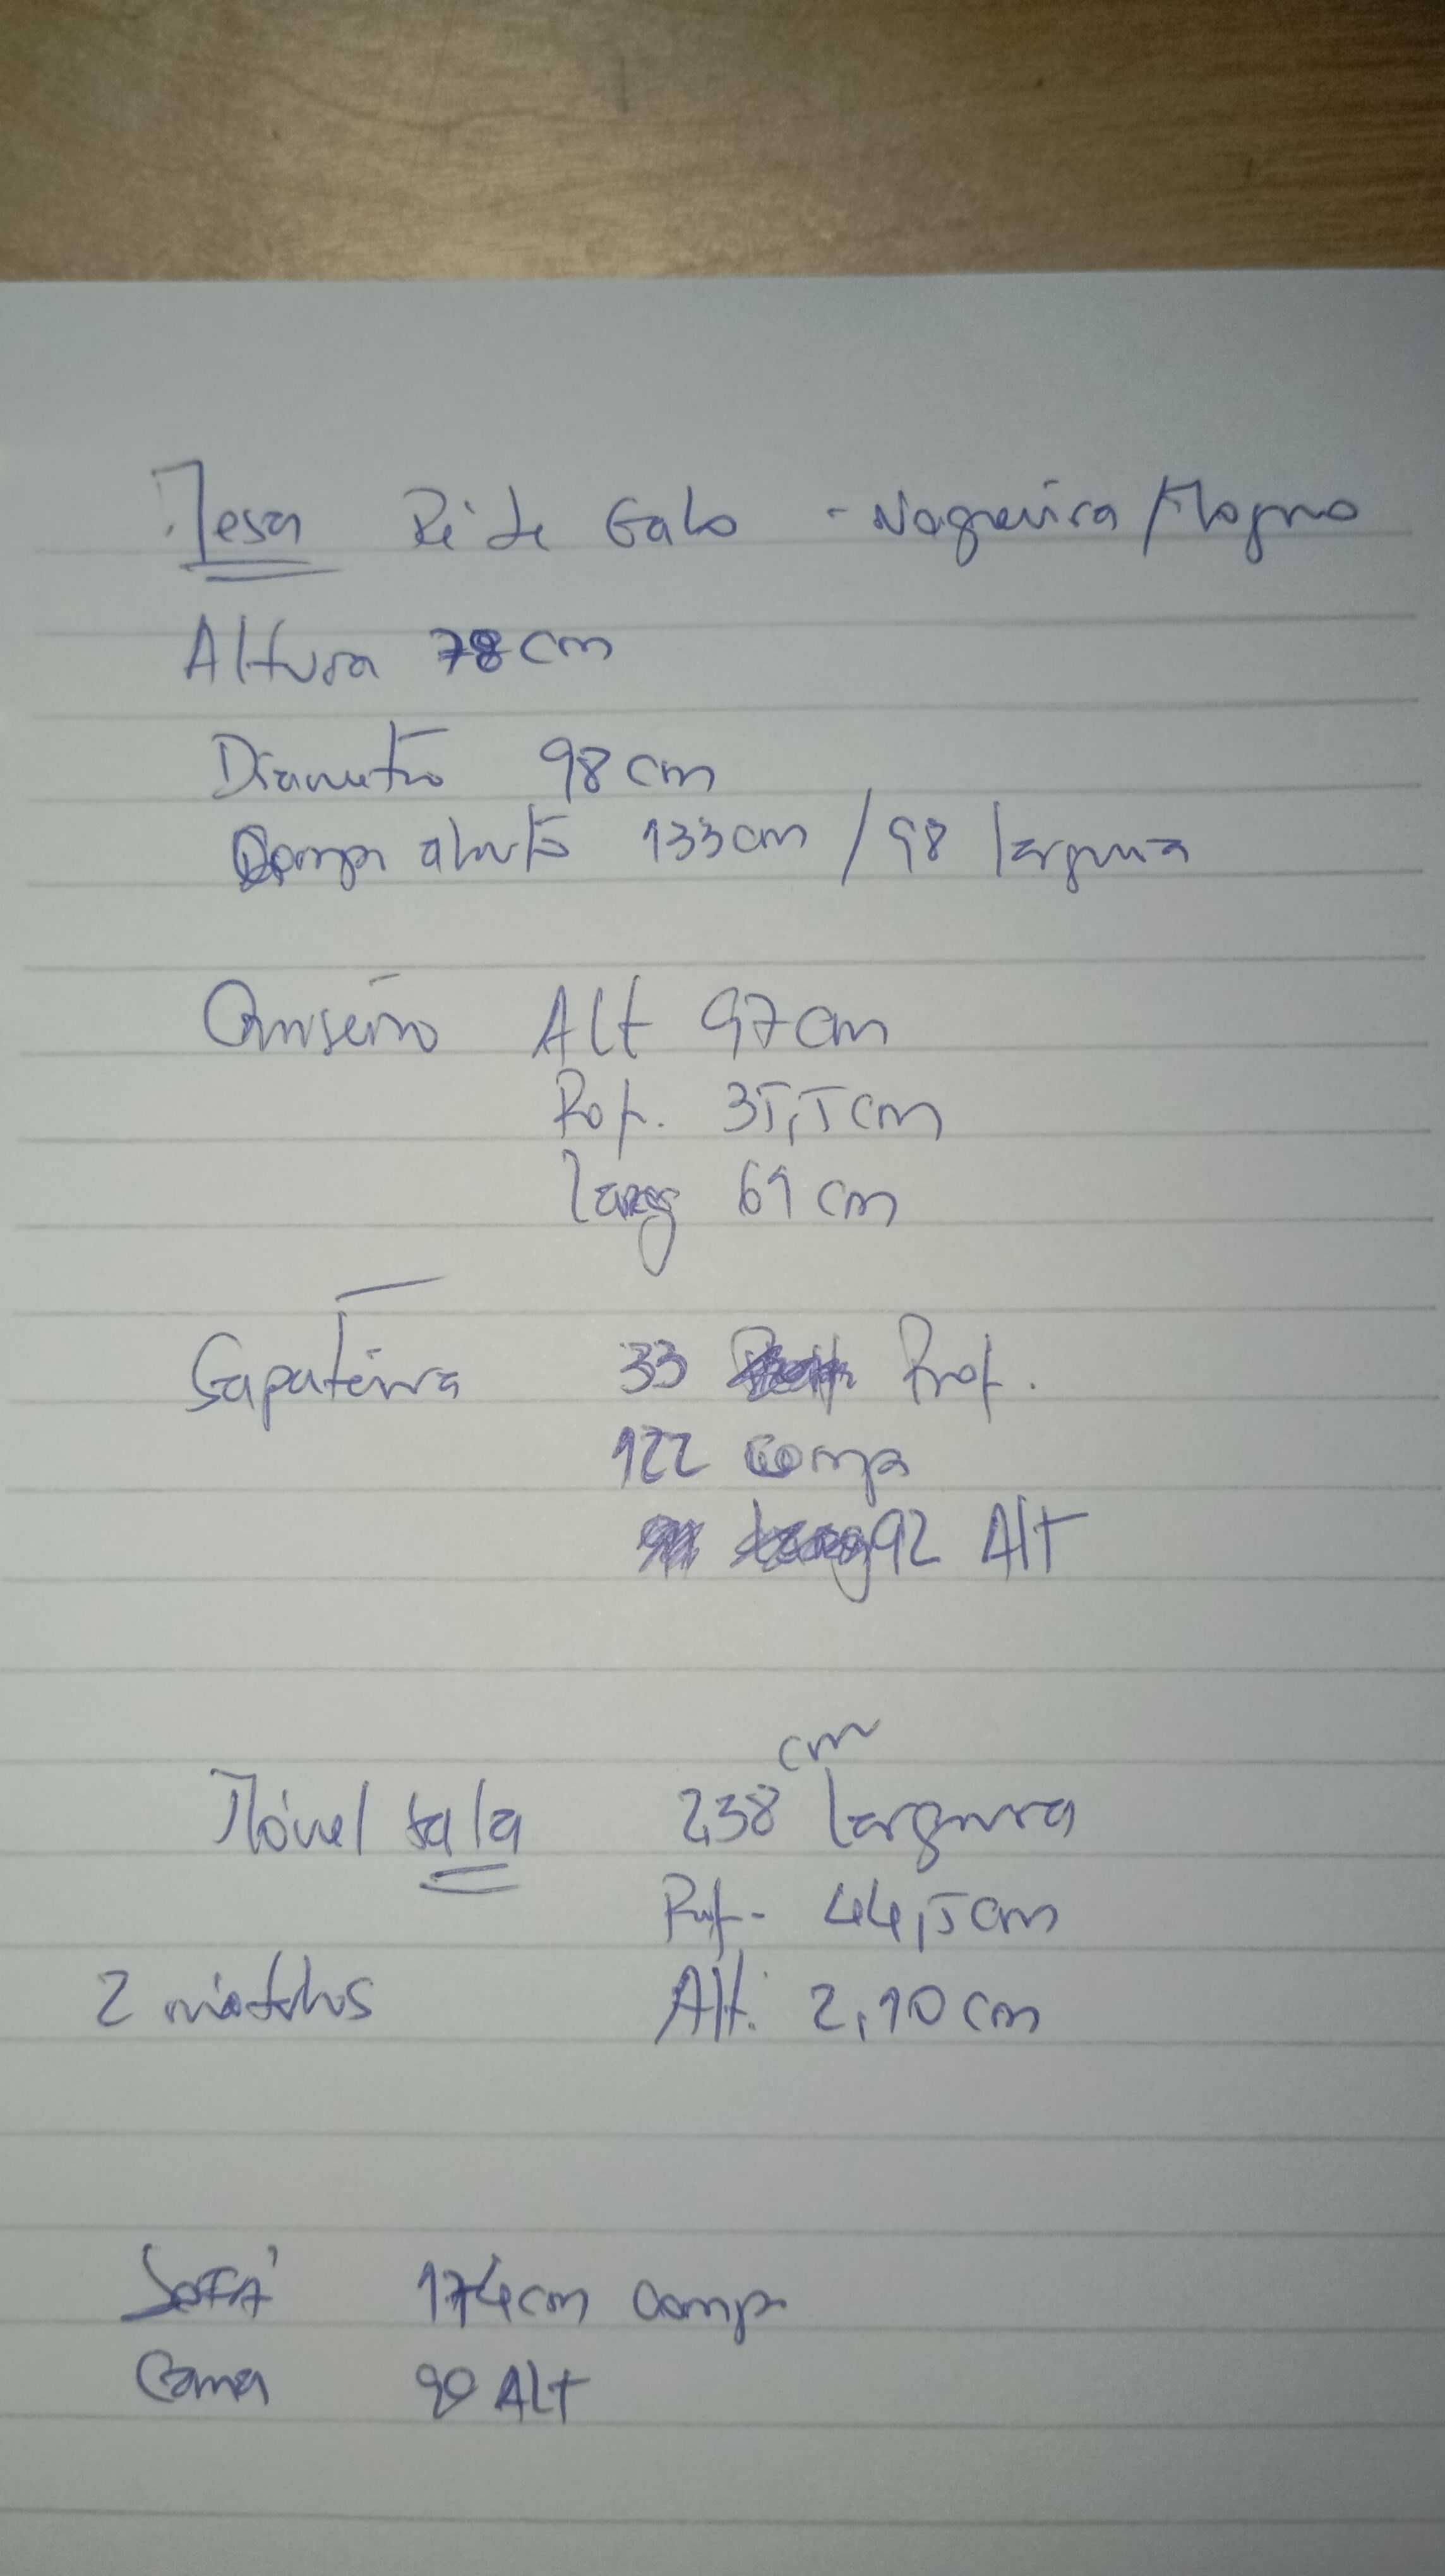 Mesa Pé de Galo - Nogueira/Mogno
Altura 78cm
Diametro 98cm
Comp aberto 133cm / 98 largura
Alt 97cm
Prof. 35,5cm
larg 61cm
Sapateira 33 Prof.
122 comp
92 Alt
cm
Móvel sala 238 largura
Prof- 44,5cm
2 módulos Alt. 2,10cm
SOFÁ 174cm comp
Cama 90 ALT